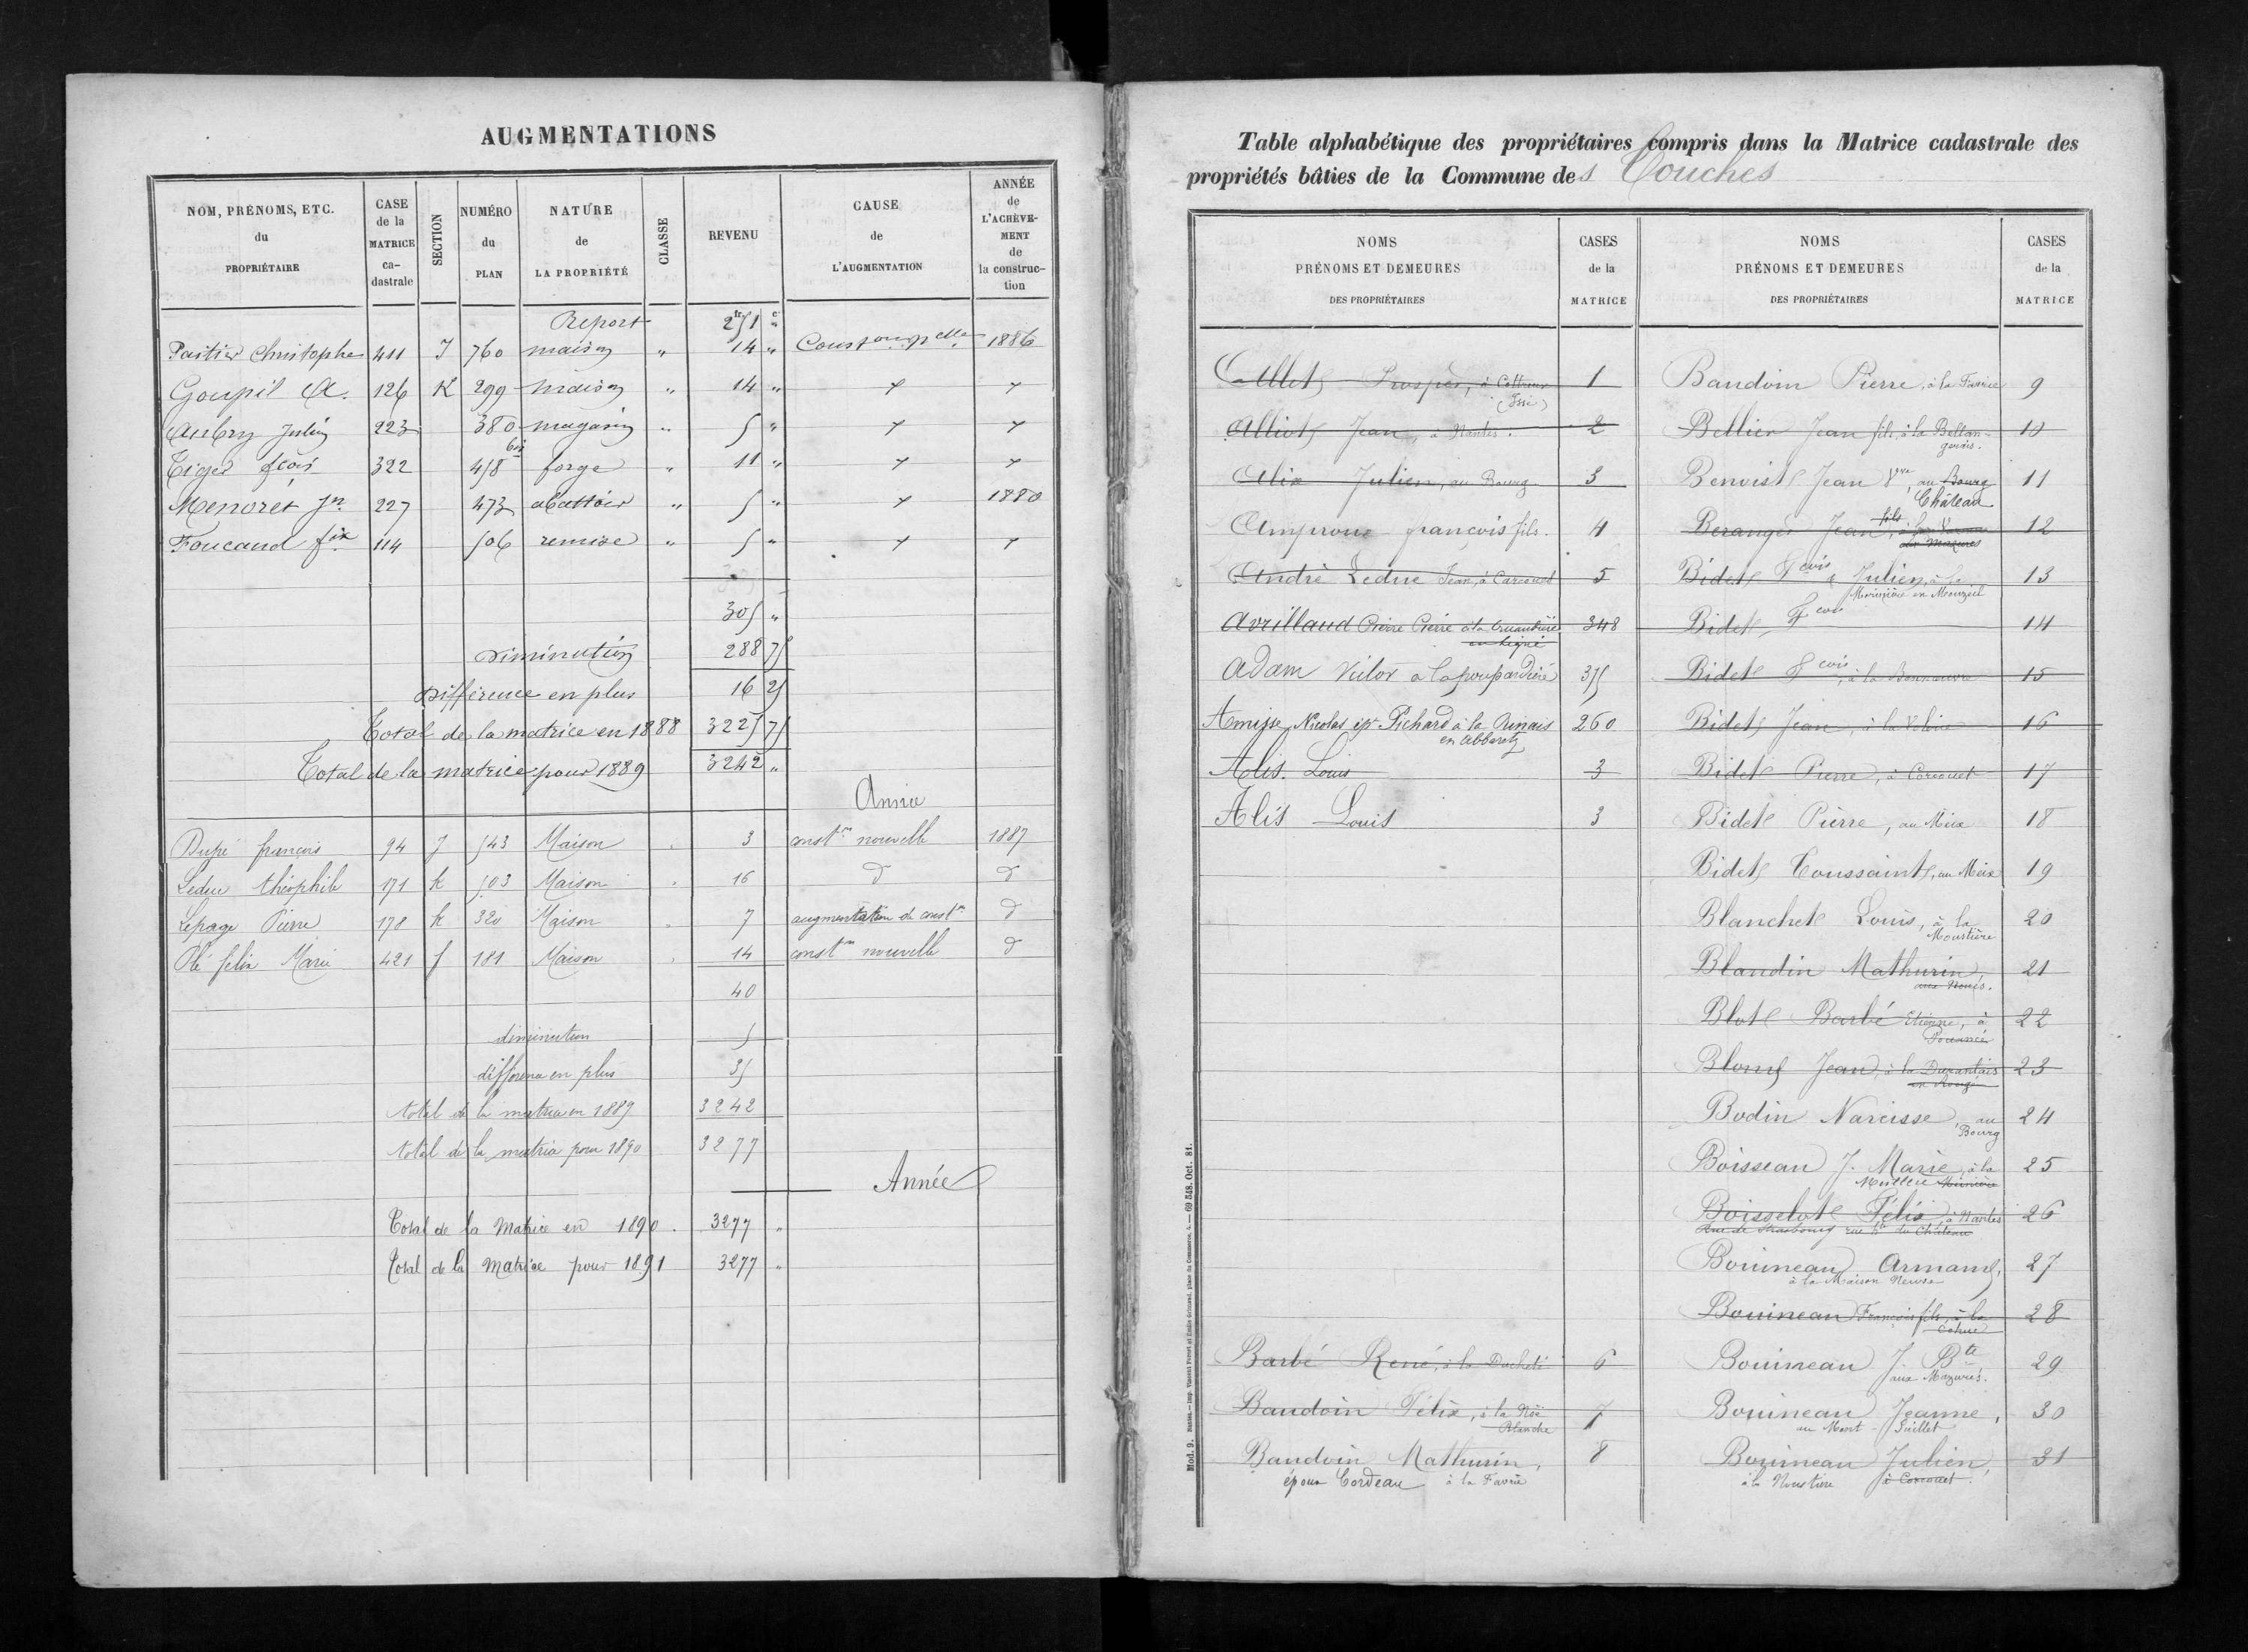 AUGMENTATIONS
NOM, PRÉNOMS, ETC. du PROPRIÉTAIRE
CASE de la MATRICE ca-dastrale
SECTION
NUMÉRO du PLAN
NATURE de LA PROPRIÉTÉ
CLASSE
REVENU
CAUSE de L'AUGMENTATION
ANNÉE de L'ACHÈVE-MENT de la construc-tion
Report 251 "
Christophe 411 J 760 maison " 14 " 1886
Goupil A. 126 K 299 maison " 14 "
Aubry Julien 223 380 magasin " 5 "
322 458 bis forge " 11 "
Menoret Jn 227 473 abattoir " 5 " 1880
Foucaud fix 114 506 remise " 5 "
305 "
Diminution 288 75
Différence en plus 16 25
Total de la matrice en 1888 3225 75
Total de la matrice pour 1889 3242 "
Année
Dupé françois 94 J 543 Maison 3 constn nouvelle 1887
Leduc théophile 171 k 503 Maison 16 d d
Lepage Pierre 178 k 320 Maison 7 augmentation de constn d
Olé félix Marie 421 J 181 Maison 14 constn nouvelle d
40
diminution 5
différence en plus 35
total de la matrice en 1889 3242
total de la matrice pour 1890 3277
Année
Total de la Matrice en 1890. 3277 "
Total de la Matrice pour 1891 3277 "
Table alphabétique des propriétaires compris dans la Matrice cadastrale des
propriétés bâties de la Commune des Touches
NOMS PRÉNOMS ET DEMEURES DES PROPRIÉTAIRES
CASES de la MATRICE
NOMS PRÉNOMS ET DEMEURES DES PROPRIÉTAIRES
CASES de la MATRICE
Allet Prosper, à 1
(Issé)
Alliot Jean, à Nantes. 2
Alix Julien, au Bourg 3
Amproux françois fils. 4
André Leduc Jean, à Carcouet 5
Avrillaud Pierre Pierre à la 348
en Ligné
Adam Victor a la poupardière 375
Amisse Nicolas ép. Pichard à la 260
en Abbaretz
Alis. Louis 3
Alis Louis 3
Barbé René, à la 6
Baudoin Félix, à la Noë 7
Blanche
Baudoin Mathurin, 8
époux Cordeau à la
Baudoin Pierre, à la 9
Bellier Jean fils, à la Bellan- 10
gerais.
Benoist Jean Vve, au Bourg 11
Château
Beranger Jean fils, 12
aux Mazures
Bidet Fcois & Julien, à la 13
en Mouzeil
Bidet, Fcois 14
Bidet Fcois, à la Bonnoeuvre 15
Bidet Jean, à la 16
Bidet Pierre, à Corcouet 17
Bidet Pierre, au Meix 18
Bidet Toussaint, au Meix 19
Blanchet Louis, à la 20
Moustière
Blandin Mathurin, 21
aux Noues.
Blot Barbé Etienne, à 22
Pouancé
Jean, à la Durantais 23
en Rougé
Bodin Narcisse, au 24
Bourg
Boisseau J. Marie, à la 25
Boisselot Félix, à Nantes 26
Rue de Strasbourg rue Hte du Château
Bouineau Armand, 27
à la Maison Neuve
Bouineau François fils, à la 28
Cohue
Bouineau J. Bte 29
aux Mazures.
Bouineau Jeanne, 30
au Mont Juillet
Bouineau Julien, 31
à la Moustière à Corcouet.
Mod. 9.